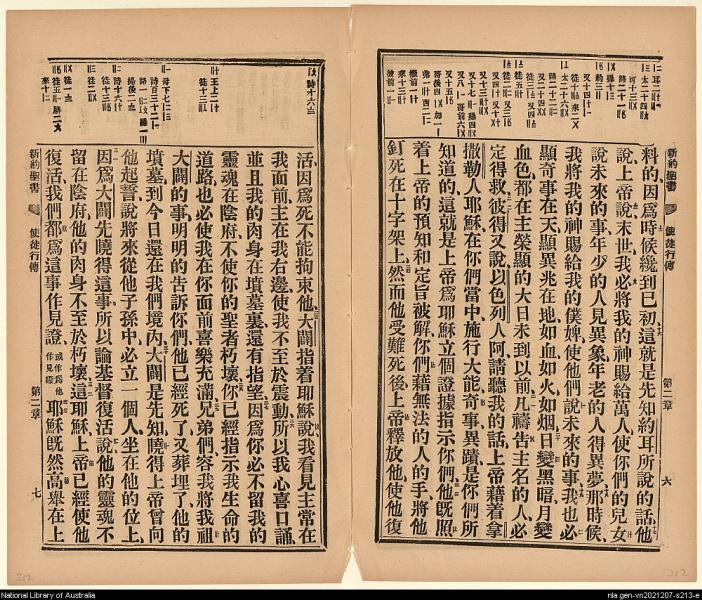 新約聖書
使徒行傳
第二章
六
料的因爲時候纔到巳初這就是先知約耳所說的話他
說上帝說末世我必將我的神賜給萬人使你們的兒女
說未來的事年少的人見異象年老的人得異夢那時候
我將我的神賜給我的僕婢使他們說未來的事我也必
顯奇事在天顯異兆在地如血如火如烟日變黑暗月變
血色都在主榮顯的大日未到以前凡禱告主名的人必
定得救彼得又說以色列人阿請聽我的話上帝藉着拿
撒勒人耶穌在你們當中施行大能奇事異蹟是你們所
知道的這就是上帝爲耶穌立個證據指示你們他旣照
着上帝的預知和定旨被解你們藉無法的人的手將他
釘死在十字架上然而他受難死後上帝釋放他使他復
活因爲死不能拘束他大闢指着耶穌說我看見主常在
我面前主在我右邊使我不至於震動所以我心喜口誦
並且我的肉身在墳墓裏還有指望因爲你必不留我的
靈魂在陰府不使你的聖者朽壞你已經指示我生命的
道路也必使我在你面前喜樂充滿兄弟們容我將我祖
大闢的事明明的告訴你們他已經死了又葬埋了他的
墳墓到今日還在我們境內大闢是先知曉得上帝曾向
他起誓說將來從他子孫中必立一個人坐在他的位上
因爲大闢先曉得這事所以論基督復活說他的靈魂不
留在陰府他的肉身不至於朽壞這耶穌上帝已經使他
復活我們都爲這事作見證或作爲他作見證耶穌旣然高舉在上
新約聖書
使徒行傳
第二章
七
212
212
National Library of Australia
nla.gen-vn2021207-s213-e